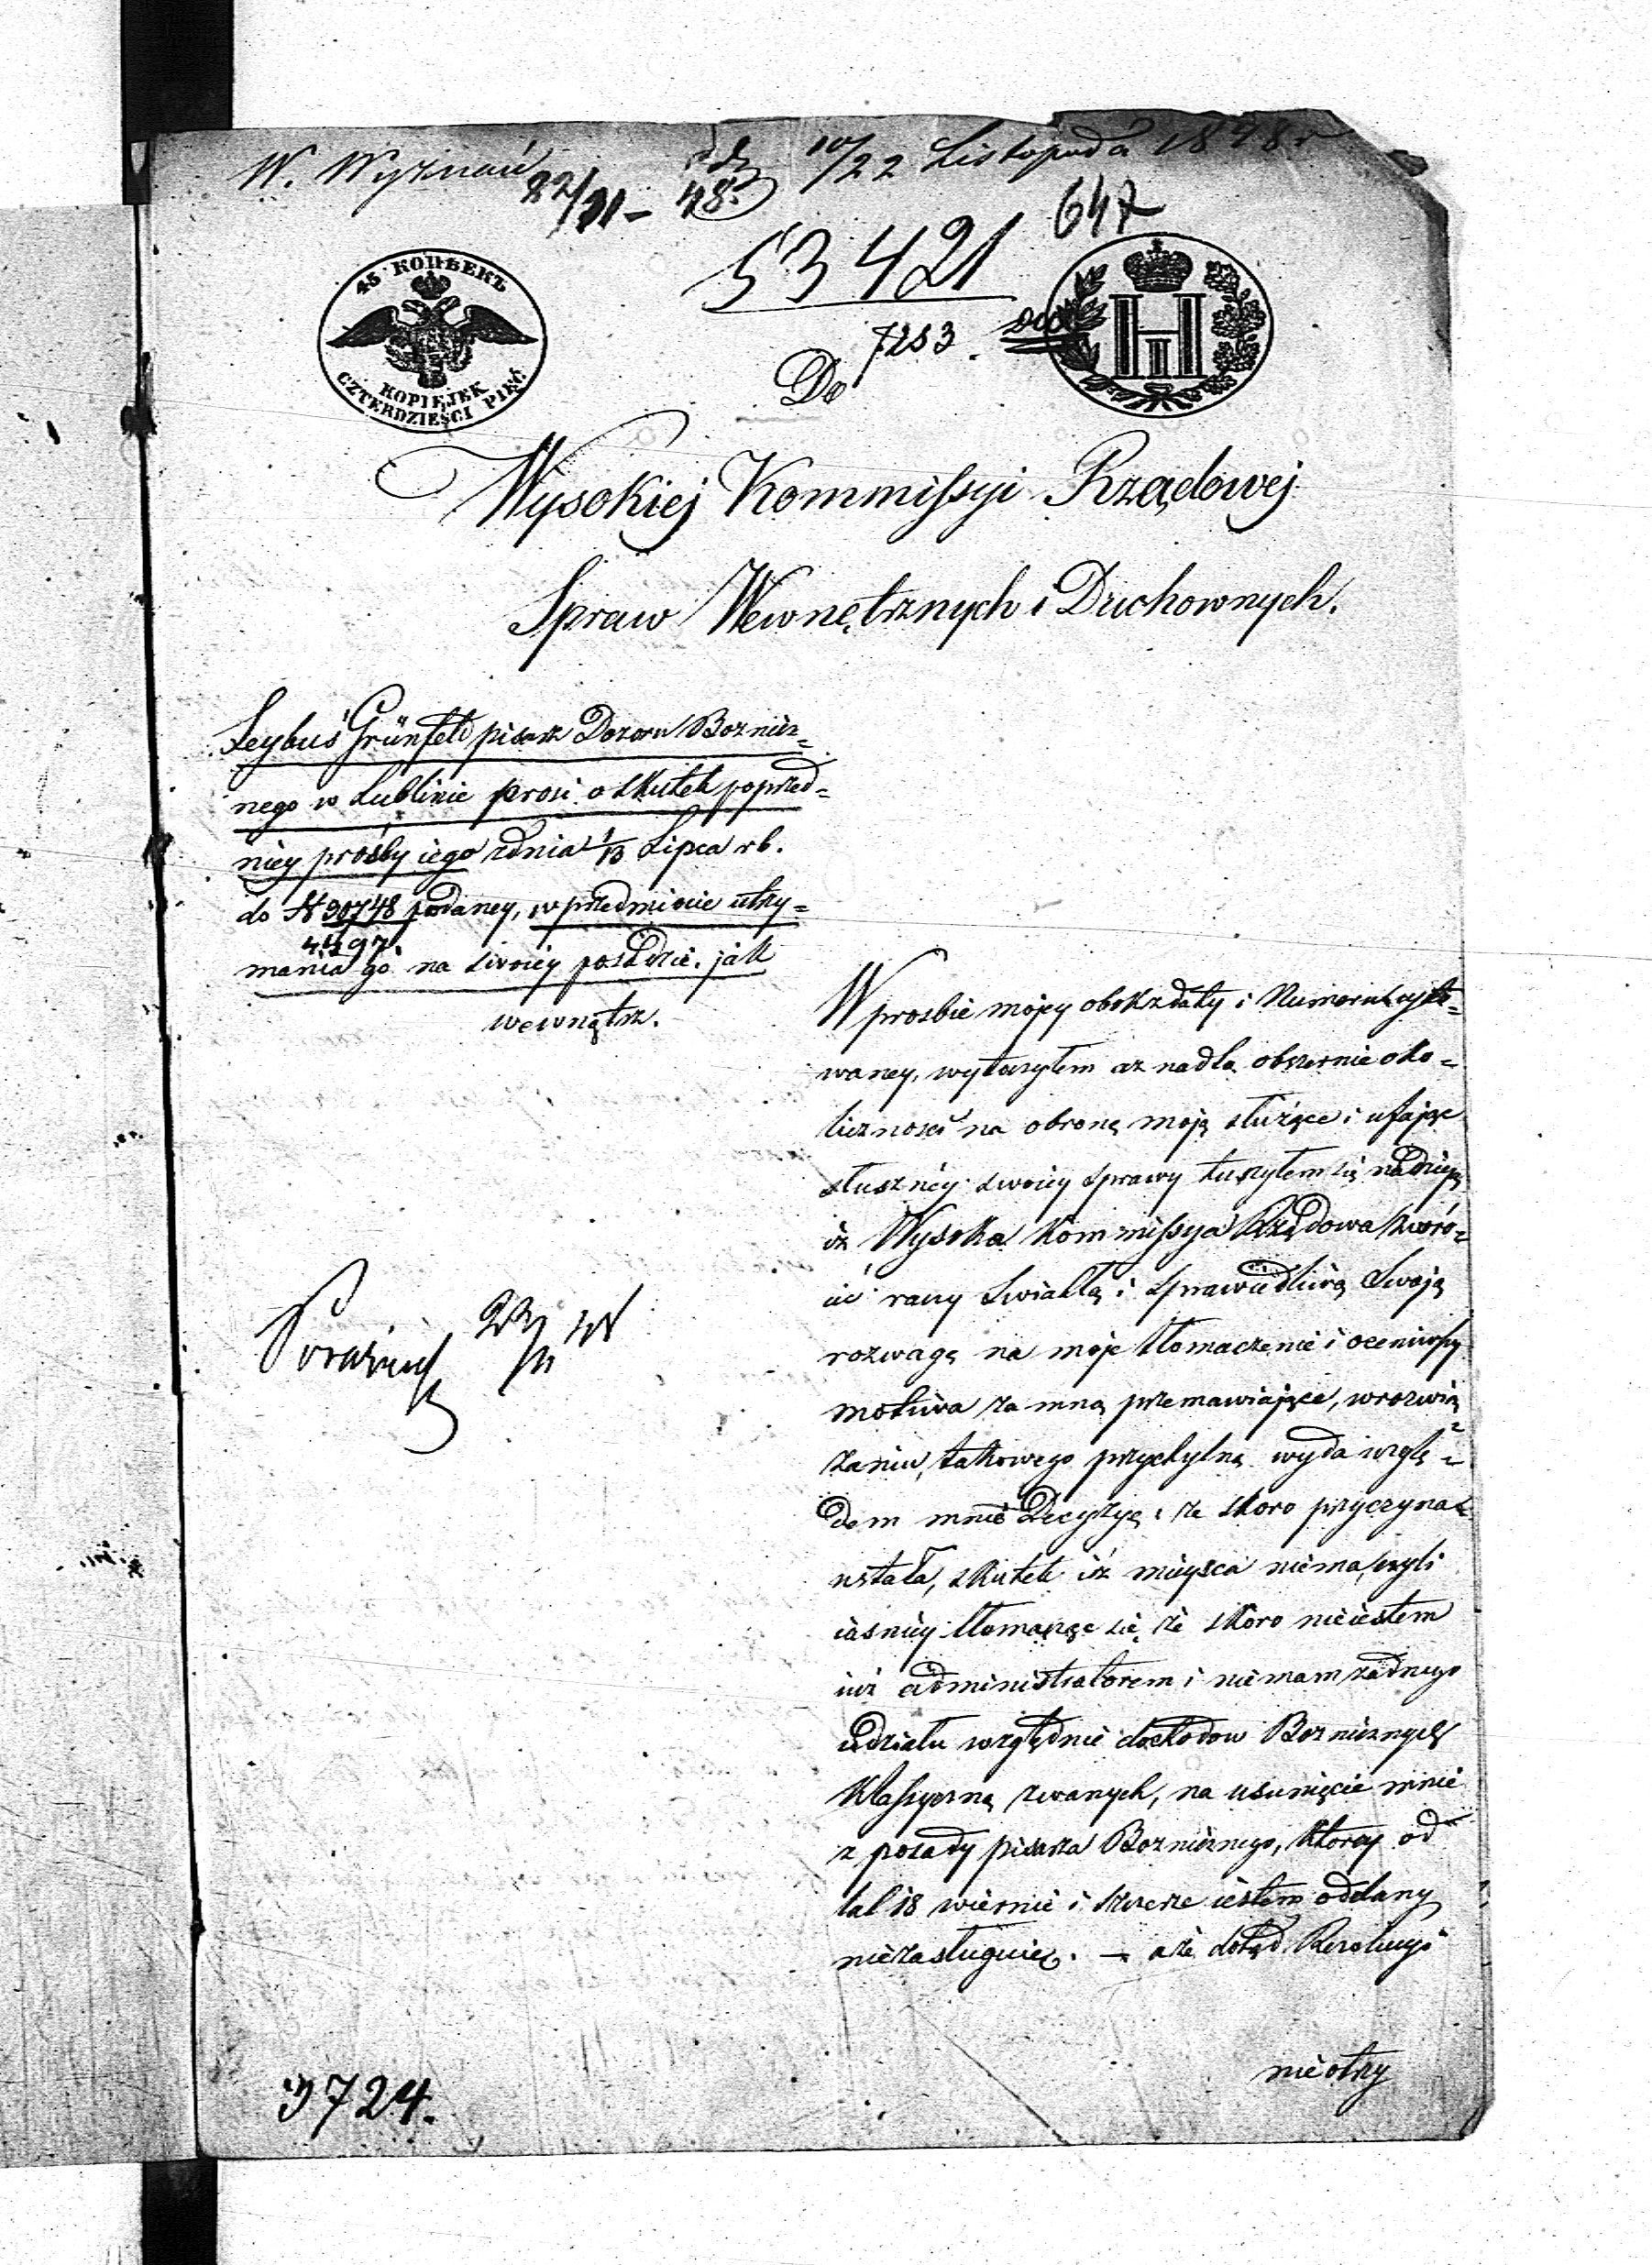 W. Wyznań
10/22 Listopada 1848 r
22/11 - 48.
647
53421
7253.
45 КОПѢЕКЪ
KOPIEJEK
CZTERDZIEŚCI PIĘĆ
Do
Wysokiej Kommissyi Rządowej
Spraw Wewnętrznych i Duchownych.
Leybuś Grünfeld pisarz Dozoru Boznicz=
nego w Lublinie prosi o skutek poprzed=
niey prośby iego zdnia 1/13 Lipca rb.
do N 30748 podaney, w przedmiocie utrzy=
4497.
mania go na swoiey posadzie. jak
wewnątrz.
W prosbie mojey obok z daty i Numeru cyto=
waney, wyłuszyłem az nadto obszernie oko=
liczności na obronę moją służące i ufając
słuszney swoiey sprawy tuszyłem się nadzieją
iż Wysoka Kommissya Rządowa zwró=
cić raczy Swiatłą i Sprawiedliwą Swoją
rozwagę na moje tłomaczenie i oceniwszy
motiwa za mną przemawiające, w rozwią=
zaniu takowego przychylną wyda wzglę=
dem mnie Decyzyę i że skoro przyczyna
ustała, skutek iuż mieysca niema, czyli
iasniey tłomacząc się, że skoro nieiestem
iuż administratorem i niemam żadnego
udziału względnie dochodow Bozniczych
Klassyczną zwanych, na usunięcie mnie
z posady pisarza Bozniczego, ktorey od
lat 18 wiernie i szczerze iestem oddany
niezasługuię. — a że dotąd Rezolucyi
nieotrzy
23/11 48
3724.